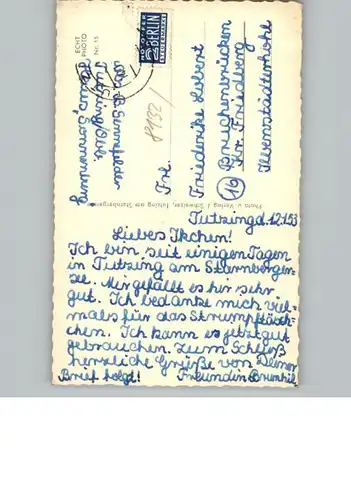 ECHT
PHOTO
Nr. 15
NOTOPFER
2 BERLIN
STEUERMARKE
Tutzing/Obb.
Haus Sonnwenberg
8132/
Frl.
Friederike Hebert
(16) Bruchenbrücken
Kr. Friedberg
Ilbenstädterhohle
Photo u. Verlag / Schweitzer, Tutzing am Starnbergersee
Tutzing d. 12.1.53
Liebes Ikchen!
Ich bin seit einigen Tagen
in Tutzing am Starnberger-
see. Mir gefällt es hir sehr
gut. Ich bedanke mich viel-
mals für das Strumpftäsch-
chen. Ich kann es jetzt gut
gebrauchen. Zum Schluß
herzliche Grüße von Deiner
Brief folgt! Freundin Brunhil